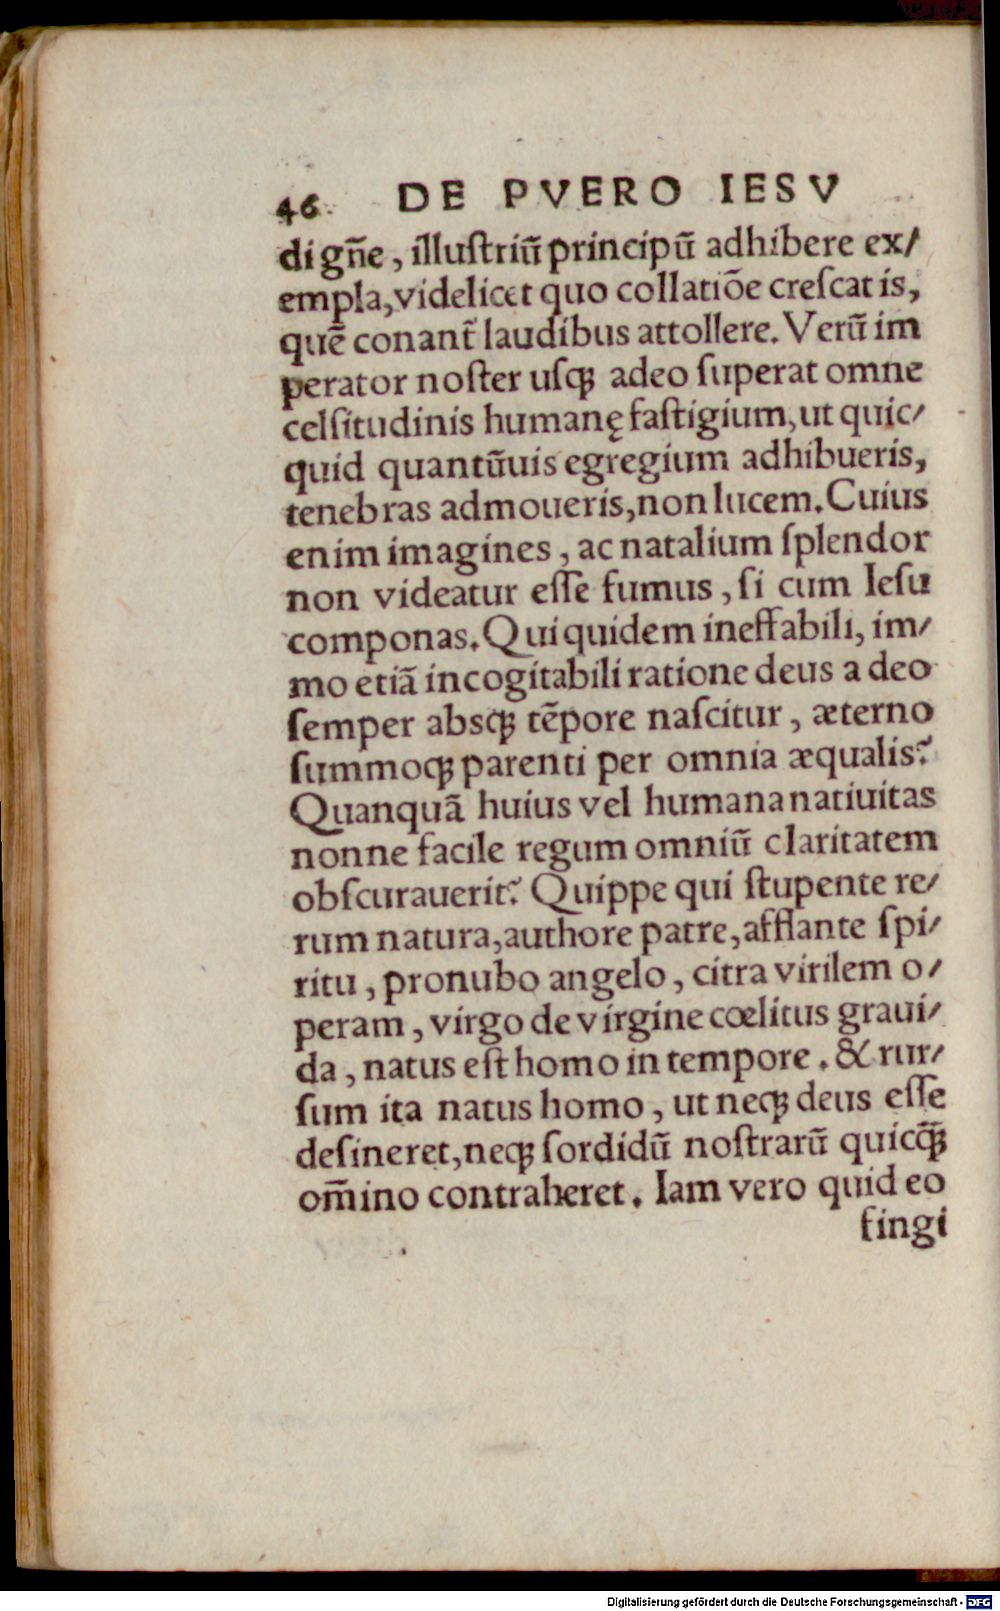 46 DE PVERO IESV
di gñe, illuſtriũ principũ adhibere ex/
empla, videlicet quo collatiõe creſcat is,
quẽ conant̃ laudibus attollere. Verũ im
perator noſter uſqꝫ adeo ſuperat omne
celſitudinis humanę faſtigium, ut quic/
quid quantũuis egregium adhibueris,
tenebras admoueris, non lucem. Cuius
enim imagines, ac natalium ſplendor
non videatur eſſe fumus, ſi cum Ieſu
componas. Qui quidem ineffabili, im/
mo etiã incogitabili ratione deus a deo
ſemper absqꝫ tẽpore naſcitur, æterno
ſummoqꝫ parenti per omnia æqualis?
Quanquã huius vel humana natiuitas
nonne facile regum omniũ claritatem
obſcurauerit? Quippe qui ſtupente re/
rum natura, authore patre, afflante ſpi/
ritu, pronubo angelo, citra virilem o/
peram, virgo de virgine cœlitus graui/
da, natus eſt homo in tempore. & rur/
ſum ita natus homo, ut neqꝫ deus eſſe
deſineret, neqꝫ ſordidũ noſtrarũ quicq̃ꝫ
om̃ino contraheret. Iam vero quid eo
fingi
Digitalisierung gefördert durch die Deutsche Forschungsgemeinschaft - DFG